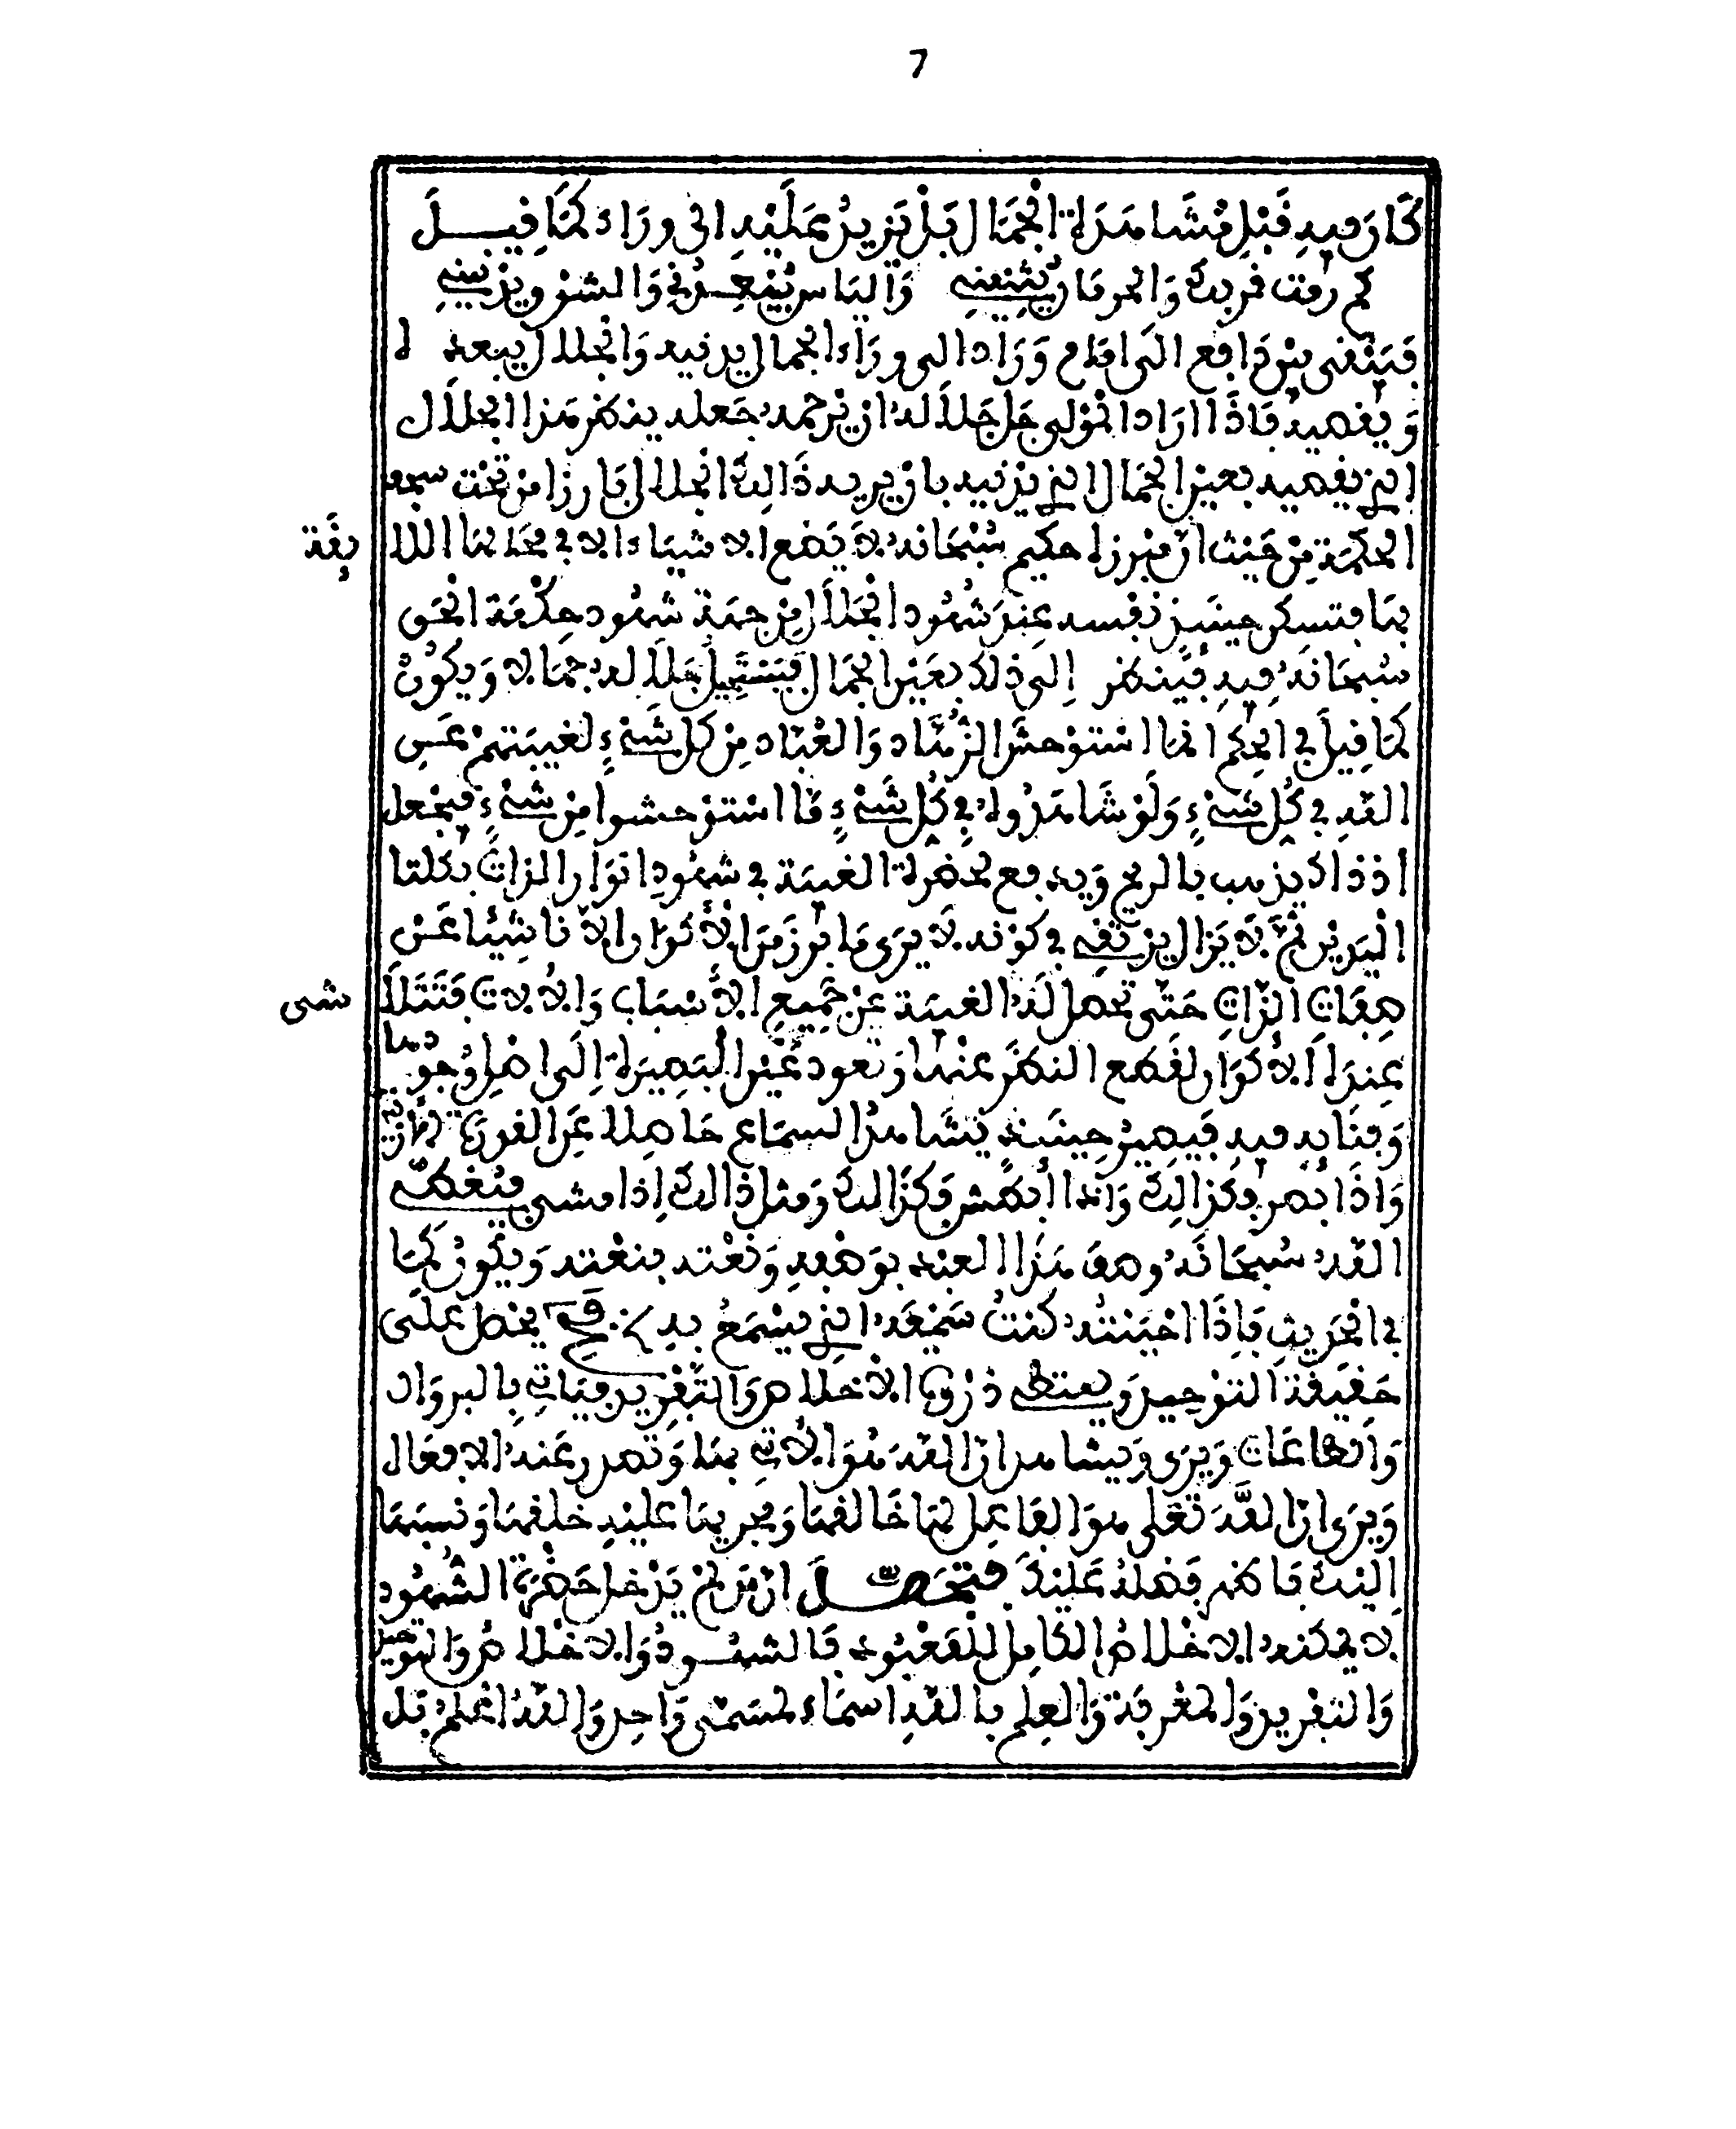 7
كان فيه قبل مشاهدة الجمال بل يزيد عليه الى وراء كما قيل
كم رمت قربك والحرمان يثنيني واليأس يقعدني والشوق يدنيني
فيبقى بين دافع الى امام وراد الى وراء الجمال يدنيه والجلال يبعده
ويقصيه فاذا اراد المولى جل جلاله ان يرحمه جعله ينظر هذا الجلال
الذي يقصيه بعين الجمال الذي يدنيه بان يريه ذالك الجلال بارزا من تحت سجف
الحكمة من حيث ان مبرزه حكيم سبحانه لا يضع الاشياء الا في محالها اللا
يقة
بها فتسكن حينئذ نفسه عند شهود الجلال من جهة شهود حكمة الحق
سبحانه فيه فينظر الى ذلك بعين الجمال فيستحيل جلاله جمالا ويكون
كما قيل في الحكم انما استوحش الزهاد والعباد من كل شيء لغيبتهم عن
الله في كل شيء ولو شاهدوه في كل شيء ما استوحشوا من شيء فيجعل
اذ ذاك يذهب بالريح ويدفع لحضرة الغيبة في شهود انوار الذات بكلتا
اليدين ثم لا يزال يرتقي في كونه لا يرى ما برز من الأكوان الا ناشئا عن
صفات الذات حتى تحصل له الغيبة عن جميع الأسباب والالات فتتلا
شى
عنده الأكوان لقطع النظر عنها وتعود عين البصيرة الى اصل وجودها
وفنائه فيه فيصير حينئذ يشاهد السماع حاصلا عن القدرة
واذا بصر فكذالك واذا ابطش فكذالك ومثل ذالك اذا مشى فيغطي
الله سبحانه وصف هذا العبد بوصفه ونعته بنعته ويكون كما
في الحديث فاذا احببته كنت سمعه الذي يسمع به فح يحصل على
حقيقة التوحيد ويعتطى ذوق الاخلاص والتفريد فياتي بالبرواد
والطاعات ويرى ويشاهد ان الله هو الاتي بها وتصدر عنه الافعال
ويرى ان الله تعلى هو الفاعل لها خالقها ومجريها عليه خلقها ونسبها
اليك فاظهر فضله عليك فتحصل ان من لم يدخل حضرة الشهود
لا يمكنه الاخلاص الكامل للمعبود فالشهود والاخلاص والتوحيد
والتفريد والمعرفة والعلم بالله اسماء لمسمى واحد والله اعلم بل